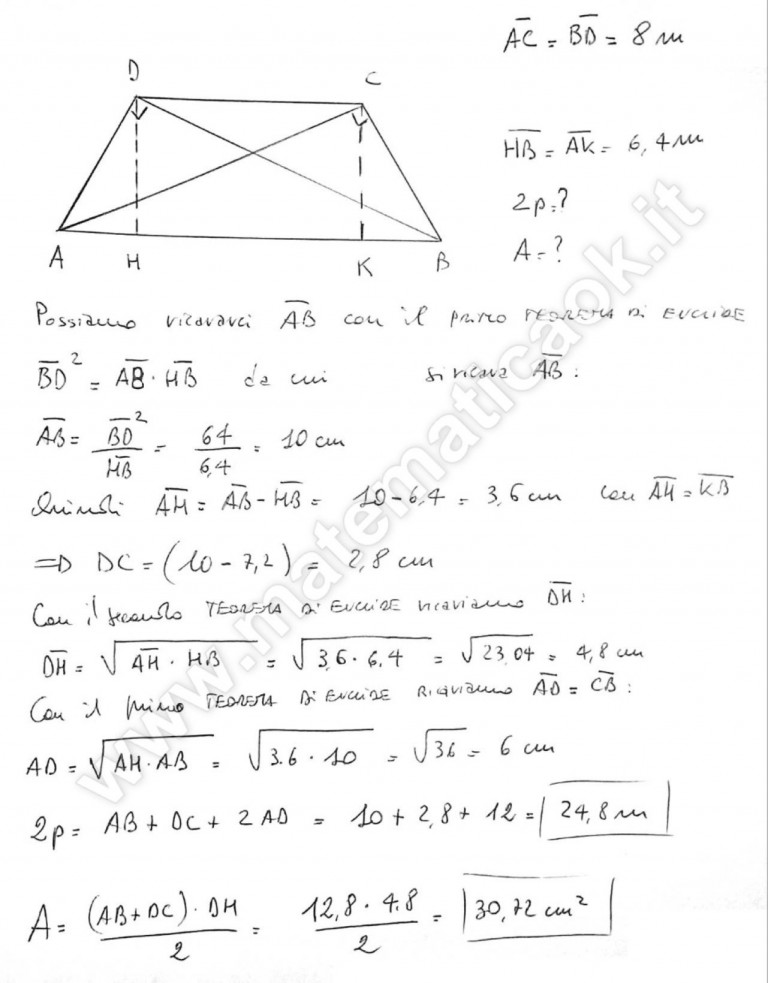 AC = BD = 8 m
D
C
HB = AK = 6,4 m
2p = ?
A = ?
A
H
K
B
Possiamo ricavarci AB con il primo TEOREMA DI EUCLIDE
BD² = AB · HB da cui si ricava AB :
AB = BD² / HB = 64 / 6,4 = 10 cm
Quindi AH = AB - HB = 10 - 6,4 = 3,6 cm con AH = KB
=D DC = (10 - 7,2) = 2,8 cm
Con il secondo TEOREMA DI EUCLIDE ricaviamo DH :
DH = √AH · HB = √3,6 · 6,4 = √23,04 = 4,8 cm
Con il primo TEOREMA DI EUCLIDE Ricaviamo AD = CB :
AD = √AH · AB = √3.6 · 10 = √36 = 6 cm
2p = AB + DC + 2 AD = 10 + 2,8 + 12 = 24,8 m
A = (AB + DC) · DH / 2 = 12,8 · 4.8 / 2 = 30,72 cm²
www.matematicaok.it